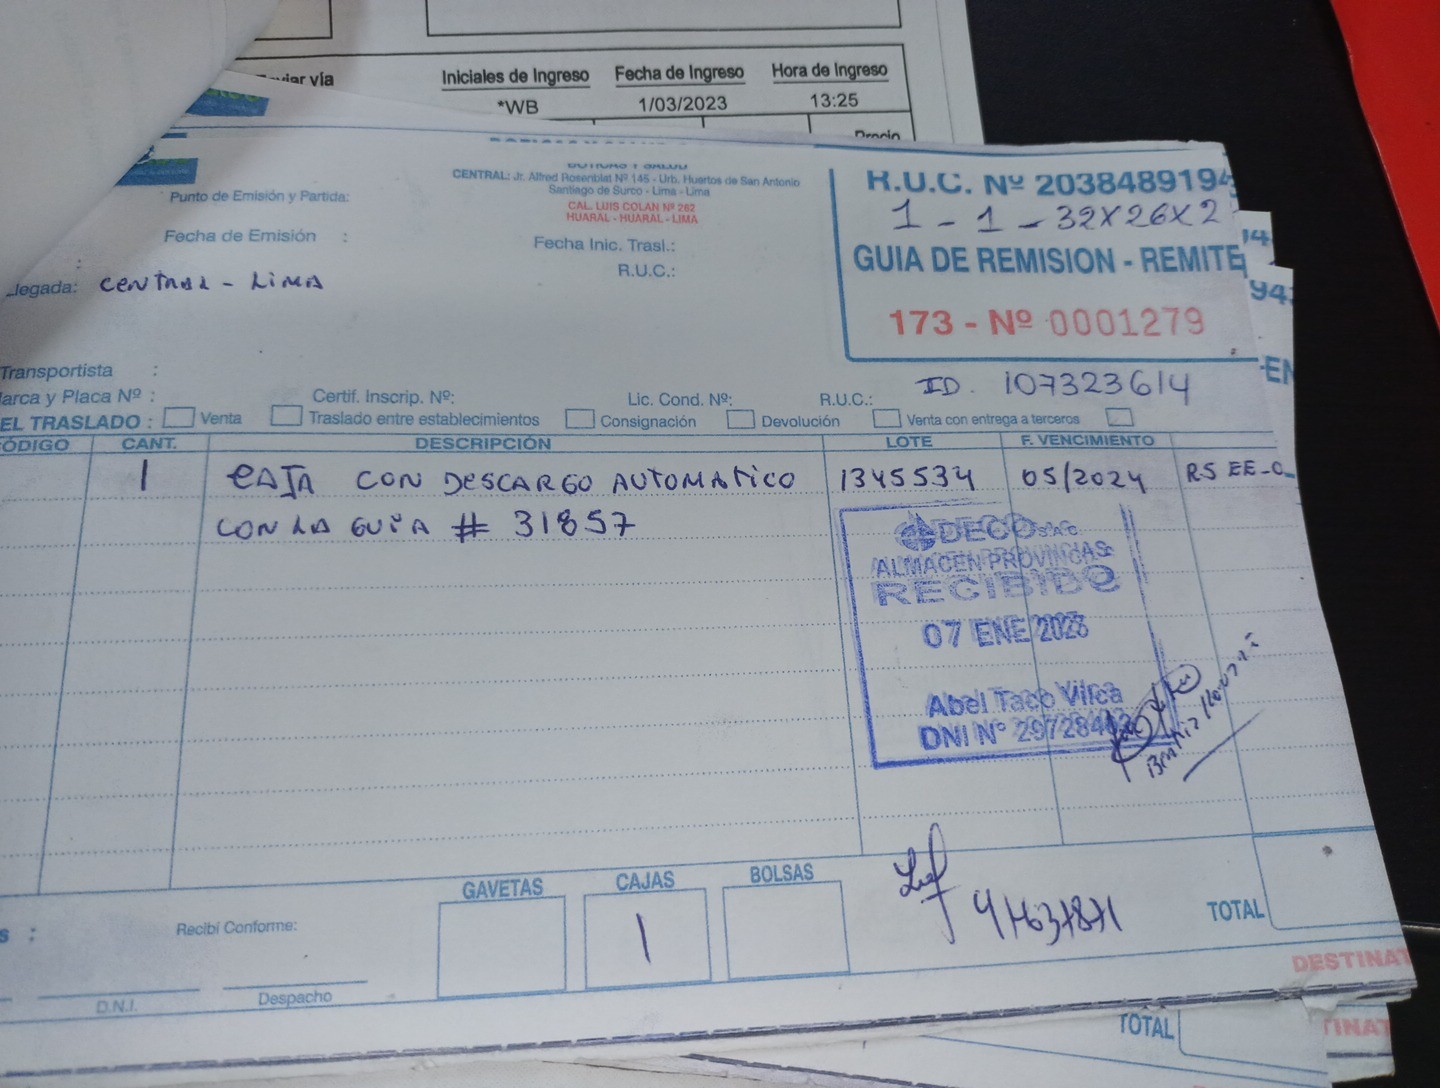 Enviar vía
Iniciales de Ingreso Fecha de Ingreso Hora de Ingreso
*WB 1/03/2023 13:25
Precio
CENTRAL: Jr. Alfred Rosenblat Nº 145 - Urb. Huertos de San Antonio
Santiago de Surco - Lima - Lima
CAL. LUIS COLAN Nº 262
HUARAL - HUARAL - LIMA
R.U.C. Nº 2038489194
1 - 1 - 32X26X2
GUIA DE REMISION - REMITE
173 - Nº 0001279
Punto de Emisión y Partida:
Fecha de Emisión :
Fecha Inic. Trasl.:
R.U.C.:
legada: CENTRAL - LIMA
Transportista :
arca y Placa Nº : Certif. Inscrip. Nº: Lic. Cond. Nº: R.U.C.:
ID. 107323614
EL TRASLADO : Venta Traslado entre establecimientos Consignación Devolución Venta con entrega a terceros
ÓDIGO CANT. DESCRIPCIÓN LOTE F. VENCIMIENTO
1 CAJA CON DESCARGO AUTOMATICO 1345534 05/2024 RS EE-0
CON LA GUIA # 31857
DECO S.A.C.
ALMACEN PROVINCIAS
RECIBIDO
07 ENE 2023
Abel Taco Vilca
DNI Nº
GAVETAS CAJAS BOLSAS
1
s : Recibí Conforme:
TOTAL
D.N.I. Despacho
DESTINAT
TOTAL
TINAT